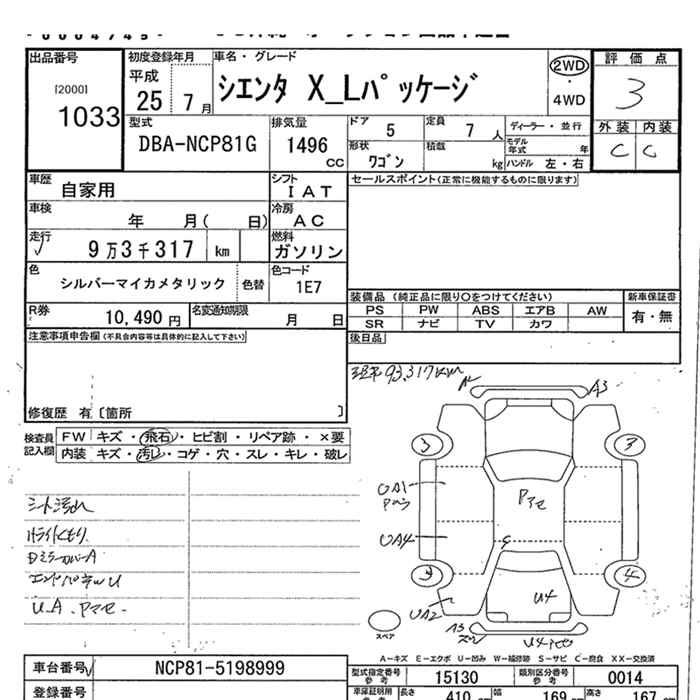 出品番号
[2000]
1033
初度登録年月
平成
25 7 月
車名・グレード
シエンタ X_Lパッケージ
2WD
・
4WD
評価点
3
外装 内装
C C
型式
DBA-NCP81G
排気量
1496
cc
ドア 5
定員 7 人
ディーラー・並行
形状
ワゴン
積載
kg
モデル年式 年
ハンドル 左・右
車歴
自家用
シフト
I AT
セールスポイント(正常に機能するものに限ります)
車検
年 月( 日)
冷房
AC
走行
9万3千317 km
燃料
ガソリン
色
シルバーマイカメタリック
色替
色コード
1E7
装備品 (純正品に限り○をつけてください)
新車保証書
PS PW ABS エアB AW
有・無
SR ナビ TV カワ
R券
10,490 円
名変通知期限
月 日
後日品
注意事項申告欄(不具合内容等は具体的に記入して下さい)
修復歴 有〔箇所 〕
93,317km
検査員
記入欄
FW キズ・飛石・ヒビ割・リペア跡・×要
内装 キズ・汚レ・コゲ・穴・スレ・キレ・破レ
シート汚れ
ライトくもり
DミラーカバーA
UA.アマセ
A3
3
3
3
4
UA1
UA4
UA2
U4
A3
U4
スペア
A－キズ E－エクボ U－凹み W－補修跡 S－サビ C－腐食 XX－交換済
車台番号
NCP81-5198999
型式指定番号
参考
15130
類別区分番号
参考
0014
登録番号
車庫証明用
参考
長さ
410 cm
幅
169 cm
高さ
167 cm